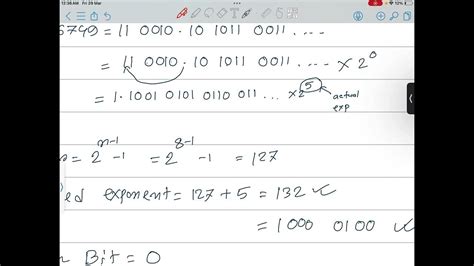 12:36 AM Fri 29 Mar
6749 = 11 0010 . 10 1011 0011 ....
= 11 0010 . 10 1011 0011 .... × 2^0
= 1 . 1001 0101 0110 011 ... × 2^5
actual
exp
= 2^(n-1) - 1 = 2^(8-1) - 1 = 127
ed exponent = 127 + 5 = 132 ✓
= 1000 0100 ✓
Bit = 0